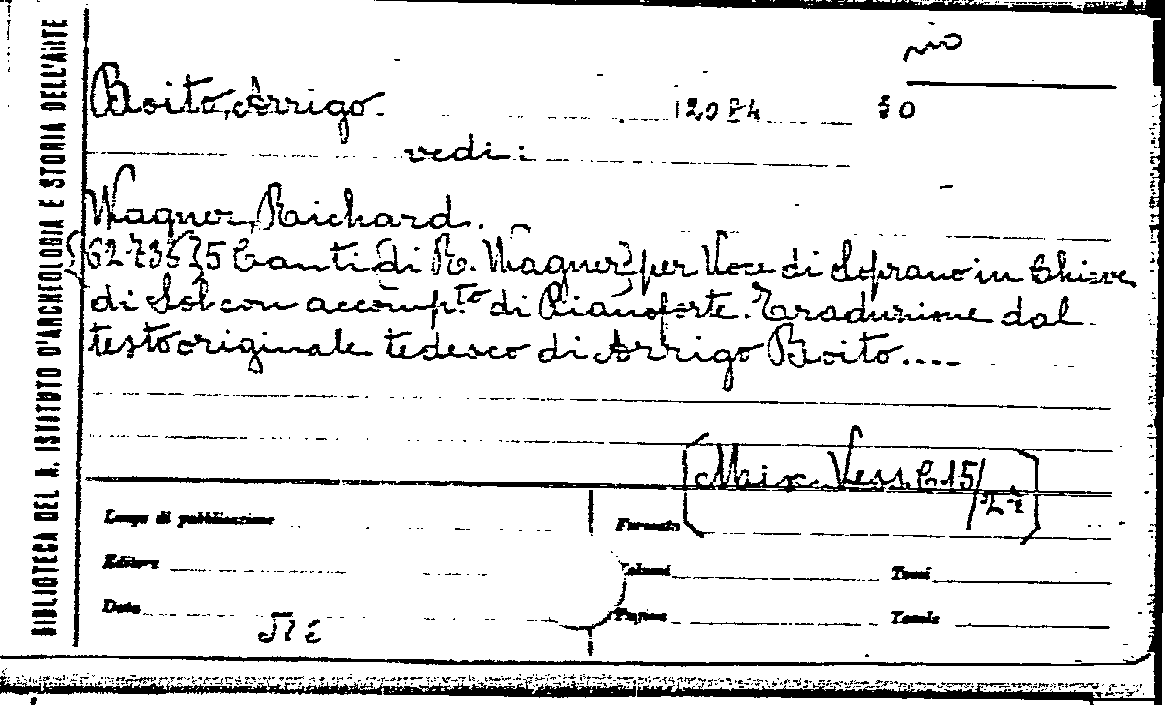 BIBLIOTECA DEL R. ISTITUTO D'ARCHEOLOGIA E STORIA DELL'ARTE
Boito, Arrigo. 12084 80
vedi:
Wagner, Richard.
[62-735] 5 Canti di R. Wagner per Voce di Soprano in Chiave
di Sol con accomp.to di Pianoforte. Traduzione dal
testo originale tedesco di Arrigo Boito....
[Misc. Vess. C 15/
Luogo di pubblicazione
Formato
Editore
Volumi
Tomi
Data
Pagine
Tavole